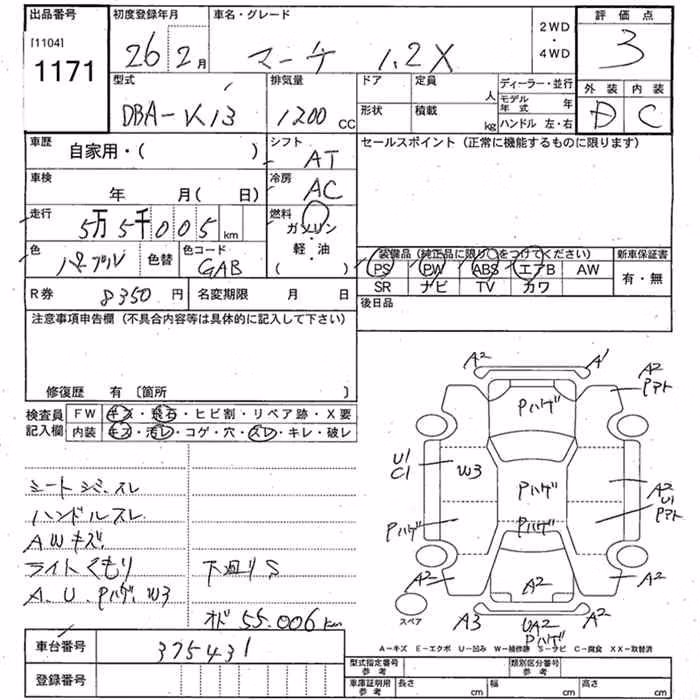 出品番号 初度登録年月 車名・グレード 2WD・4WD 評価点
[1104]
1171 26年2月 マーチ 1.2X 3
型式 排気量 ドア 定員 人 ディーラー・並行 外装 内装
DBA-K13 1200cc 形状 積載 kg モデル年式 年 D C
ハンドル 左・右
車歴 自家用・( ) シフト AT セールスポイント (正常に機能するものに限ります)
車検 年 月(日) 冷房 AC
走行 5万5千005km 燃料 ガソリン・軽・油( )
色 パープル 色替 色コード GAB
装備品 (純正品に限り○をつけてください) 新車保証書
PS PW ABS エアB AW 有・無
SR ナビ TV カワ
R券 8350円 名変期限 月 日 後日品
注意事項申告欄 (不具合内容等は具体的に記入して下さい)
修復歴 有 〔箇所 〕
検査員記入欄 FW キズ・飛石・ヒビ割・リペア跡・X要
内装 キズ・汚レ・コゲ・穴・スレ・キレ・破レ
シートシミ、スレ
ハンドルスレ
AWキズ
ライトくもり 下廻りS
A.U.Pハゲ.W3
オド 55.006km
車台番号 375431
登録番号
A2 A1
A2 Pアト
Pハゲ
U1 C1 W3 Pハゲ A2 U1 Pアト
Pハゲ Pハゲ
A2 A2 A2
スペア A3 UA2 Pハゲ A2
A-キズ E-エクボ U-凹み W-補修跡 S-サビ C-腐食 XX-取替済
型式指定番号 参考 類別区分番号 参考
車庫証明用 参考 長さ cm 幅 cm 高さ cm